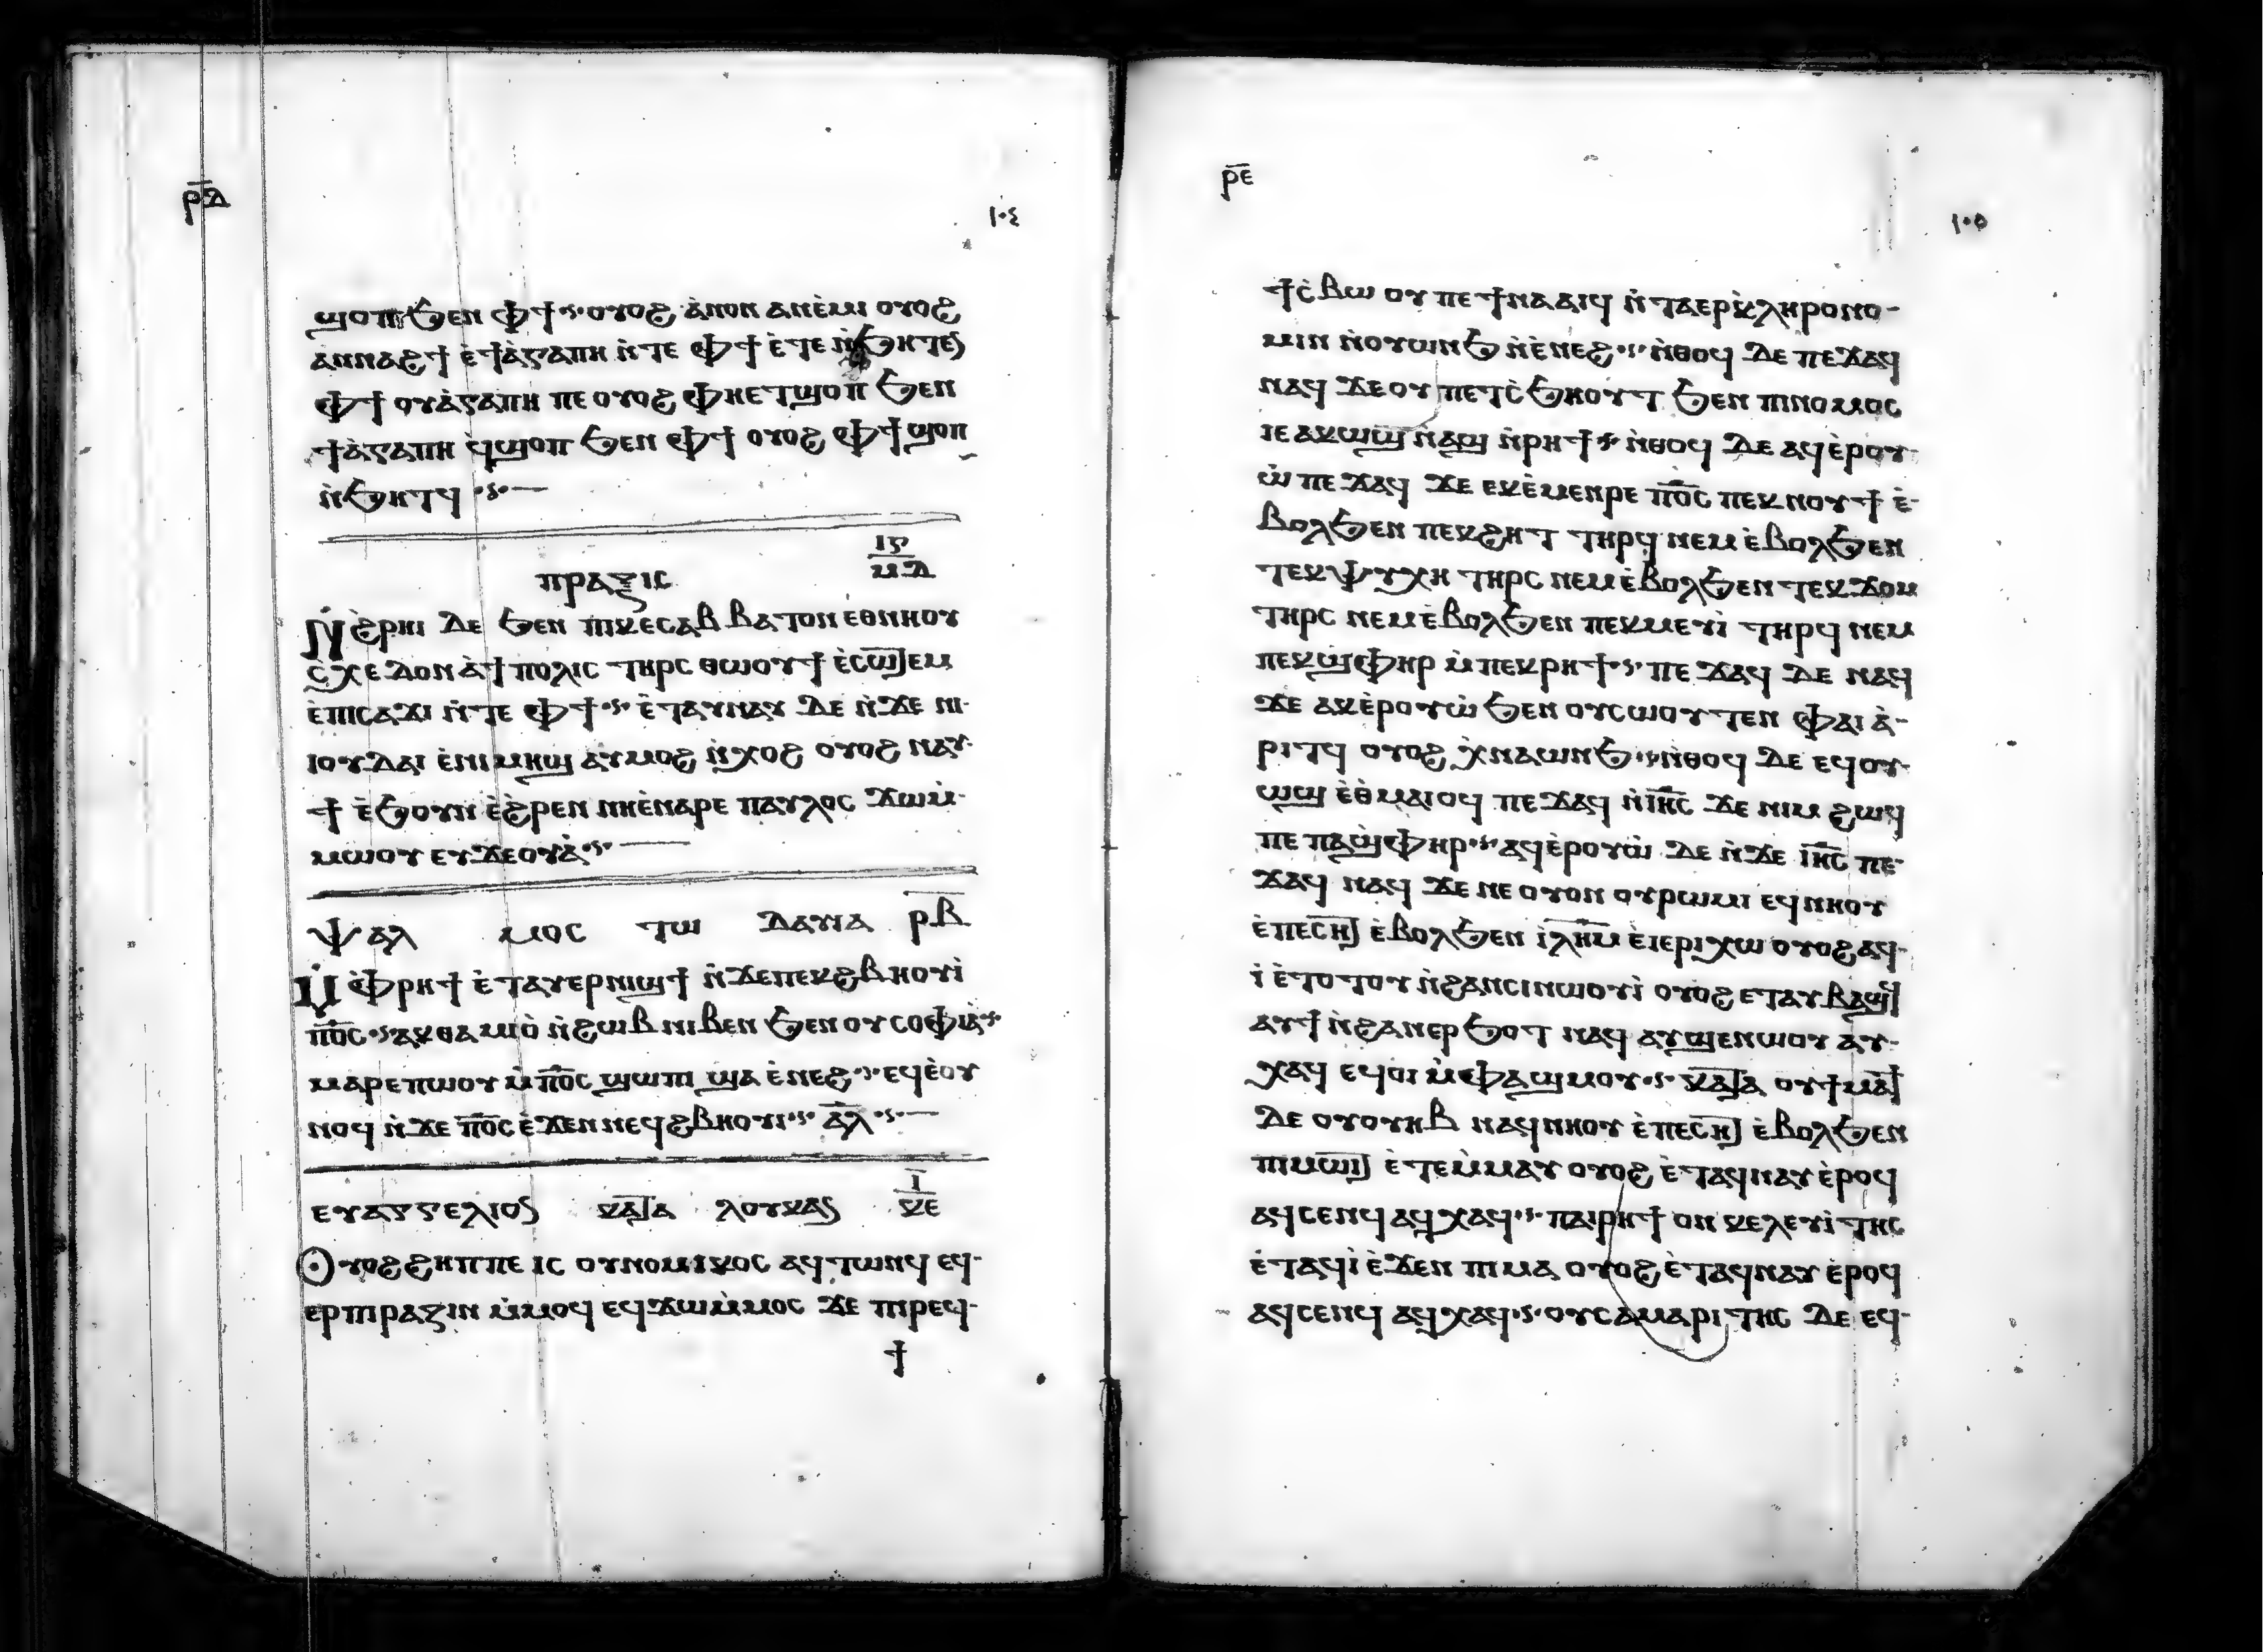 ⲣ̅ⲇ̅
١٠٤
ϣⲟⲡ ϧⲉⲛ ⲫϯ ⲟⲩⲟϩ ⲁ̀ⲛⲟⲛ ⲁⲛⲉ̀ⲙⲓ ⲟⲩⲟϩ
ⲁⲛⲛⲁϩϯ ⲉ̀ϯⲁ̀ⲅⲁⲡⲏ ⲛ̀ⲧⲉ ⲫϯ ⲉ̀ⲧⲉ ⲛ̀ϧⲏⲧⲉⲛ
ⲫϯ ⲟⲩⲁ̀ⲅⲁⲡⲏ ⲡⲉ ⲟⲩⲟϩ ⲫⲏⲉⲧϣⲟⲡ ϧⲉⲛ
ϯⲁ̀ⲅⲁⲡⲏ ϥ̀ϣⲟⲡ ϧⲉⲛ ⲫϯ ⲟⲩⲟϩ ⲫϯ ϣⲟⲡ
ⲛ̀ϧⲏⲧϥ
ⲓⲋ
ⲙⲇ
ⲡⲣⲁⲝⲓⲥ
ⲛ̀ϩ̀ⲣⲏⲓ ⲇⲉ ϧⲉⲛ ⲡⲓⲕⲉⲥⲁⲃⲃⲁⲧⲟⲛ ⲉⲑⲛⲏⲟⲩ
ⲥ̀ⲭⲉⲇⲟⲛ ⲁ̀ϯⲡⲟⲗⲓⲥ ⲧⲏⲣⲥ ⲑⲱⲟⲩϯ ⲉ̀ⲥⲱⲧⲉⲙ
ⲉ̀ⲡⲓⲥⲁϫⲓ ⲛ̀ⲧⲉ ⲫϯ ⲉ̀ⲧⲁⲩⲛⲁⲩ ⲇⲉ ⲛ̀ϫⲉ ⲛⲓ-
ⲓⲟⲩⲇⲁⲓ ⲉ̀ⲛⲓⲙⲏϣ ⲁⲩⲙⲟϩ ⲛ̀ⲭⲟϩ ⲟⲩⲟϩ ⲛⲁⲩ-
ϯ ⲉ̀ϧⲟⲩⲛ ⲉ̀ϩ̀ⲣⲉⲛ ⲛⲏⲉ̀ⲛⲁⲣⲉ ⲡⲁⲩⲗⲟⲥ ϫⲱⲙ̀-
ⲙⲱⲟⲩ ⲉⲩϫⲉⲟⲩⲁ̀
ⲯⲁⲗⲙⲟⲥ ⲧⲱ ⲇⲁⲩⲓⲇ ⲣ̅ⲃ̅
ⲙ̀ⲫⲣⲏϯ ⲉ̀ⲧⲁⲩⲉⲣⲛⲓϣϯ ⲛ̀ϫⲉⲡⲉⲕϩⲃⲏⲟⲩⲓ̀
ⲡ̅ⲟ̅ⲥ̅ ⲁⲕⲑⲁⲙⲓⲟ̀ ⲛ̀ϩⲱⲃ ⲛⲓⲃⲉⲛ ϧⲉⲛ ⲟⲩⲥⲟⲫⲓⲁ̀
ⲙⲁⲣⲉⲡⲱⲟⲩ ⲙ̀ⲡ̅ⲟ̅ⲥ̅ ϣⲱⲡⲓ ϣⲁ ⲉ̀ⲛⲉϩ ⲉϥⲉ̀ⲟⲩ
ⲛⲟϥ ⲛ̀ϫⲉ ⲡ̅ⲟ̅ⲥ̅ ⲉ̀ϫⲉⲛ ⲛⲉϥϩⲃⲏⲟⲩⲓ ⲁ̅ⲗ̅
ⲉⲩⲁⲅⲅⲉⲗⲓⲟⲛ ⲕⲁⲧⲁ ⲗⲟⲩⲕⲁⲛ ⲓ̅ ⲕⲉ
ⲟⲩⲟϩ ϩⲏⲡⲡⲉ ⲓⲥ ⲟⲩⲛⲟⲙⲓⲕⲟⲥ ⲁϥⲧⲱⲛϥ ⲉϥ-
ⲉⲣⲡⲓⲣⲁⲍⲓⲛ ⲙ̀ⲙⲟϥ ⲉϥϫⲱⲙ̀ⲙⲟⲥ ϫⲉ ⲡⲓⲣⲉϥ-
ϯ
ⲣ̅ⲉ̅
١٠٥
ϯⲥ̀ⲃⲱ ⲟⲩ ⲡⲉϯⲛⲁⲁⲓϥ ⲛ̀ⲧⲁⲉⲣⲕ̀ⲗⲏⲣⲟⲛⲟ-
ⲙⲓⲛ ⲛ̀ⲟⲩⲱⲛϧ ⲛ̀ⲉ̀ⲛⲉϩ ⲛ̀ⲑⲟϥ ⲇⲉ ⲡⲉϫⲁϥ
ⲛⲁϥ ϫⲉ ⲟⲩ ⲡⲉⲧⲥ̀ϧⲏⲟⲩⲧ ϧⲉⲛ ⲡⲓⲛⲟⲙⲟⲥ
ⲓⲉ ⲁⲕⲱϣ ⲛⲁϣ ⲛ̀ⲣⲏϯ ⲛ̀ⲑⲟϥ ⲇⲉ ⲁϥⲉ̀ⲣⲟⲩ-
ⲱ̀ ⲡⲉϫⲁϥ ϫⲉ ⲉⲕⲉ̀ⲙⲉⲛⲣⲉ ⲡ̅ⲟ̅ⲥ̅ ⲡⲉⲕⲛⲟⲩϯ ⲉ̀-
ⲃⲟⲗϧⲉⲛ ⲡⲉⲕϩⲏⲧ ⲧⲏⲣϥ ⲛⲉⲙ ⲉ̀ⲃⲟⲗϧⲉⲛ
ⲧⲉⲕⲯⲩⲭⲏ ⲧⲏⲣⲥ ⲛⲉⲙ ⲉ̀ⲃⲟⲗϧⲉⲛ ⲧⲉⲕϫⲟⲙ
ⲧⲏⲣⲥ ⲛⲉⲙ ⲉ̀ⲃⲟⲗϧⲉⲛ ⲡⲉⲕⲙⲉⲩⲓ̀ ⲧⲏⲣϥ ⲛⲉⲙ
ⲡⲉⲕϣⲫⲏⲣ ⲙ̀ⲡⲉⲕⲣⲏϯ ⲡⲉϫⲁϥ ⲇⲉ ⲛⲁϥ
ϫⲉ ⲁⲕⲉ̀ⲣⲟⲩⲱ̀ ϧⲉⲛ ⲟⲩⲥⲱⲟⲩⲧⲉⲛ ⲫⲁⲓ ⲁ̀-
ⲣⲓⲧϥ ⲟⲩⲟϩ ⲭ̀ⲛⲁⲱⲛϧ ⲛ̀ⲑⲟϥ ⲇⲉ ⲉϥⲟⲩ-
ⲱϣ ⲉ̀ⲑ̀ⲙⲁⲓⲟϥ ⲡⲉϫⲁϥ ⲛ̀ⲓ̅ⲏ̅ⲥ̅ ϫⲉ ⲛⲓⲙ ϩⲱϥ
ⲡⲉ ⲡⲁϣ̀ⲫⲏⲣ ⲁϥⲉ̀ⲣⲟⲩⲱ̀ ⲇⲉ ⲛ̀ϫⲉ ⲓ̅ⲏ̅ⲥ̅ ⲡⲉ-
ϫⲁϥ ⲛⲁϥ ϫⲉ ⲛⲉ ⲟⲩⲟⲛ ⲟⲩⲣⲱⲙⲓ ⲉϥⲛⲏⲟⲩ
ⲉ̀ⲡⲉⲥⲏⲧ ⲉ̀ⲃⲟⲗϧⲉⲛ ⲓ̅ⲗ̅ⲏ̅ⲙ̅ ⲉ̀ⲓⲉⲣⲓⲭⲱ ⲟⲩⲟϩ ⲁϥ-
ⲓ̀ ⲉ̀ⲧⲟⲧⲟⲩ ⲛ̀ϩⲁⲛⲥⲓⲛⲱⲟⲩⲓ̀ ⲟⲩⲟϩ ⲉⲧⲁⲩⲃⲁϣϥ
ⲁⲩϯ ⲛ̀ϩⲁⲛⲉⲣϧⲟⲧ ⲛⲁϥ ⲁⲩϣⲉⲛⲱⲟⲩ ⲁⲩ-
ⲭⲁϥ ⲉϥⲟⲓ ⲙ̀ⲫⲁϣⲙⲟⲩ ⲕⲁⲧⲁ ⲟⲩϯⲙⲁϯ
ⲇⲉ ⲟⲩⲟⲩⲏⲃ ⲛⲁϥⲛⲏⲟⲩ ⲉ̀ⲡⲉⲥⲏⲧ ⲉ̀ⲃⲟⲗϧⲉⲛ
ⲡⲓⲙⲱⲓⲧ ⲉ̀ⲧⲉⲙ̀ⲙⲁⲩ ⲟⲩⲟϩ ⲉ̀ⲧⲁϥⲛⲁⲩ ⲉ̀ⲣⲟϥ
ⲁϥⲥⲉⲛϥ ⲁϥⲭⲁϥ ⲡⲁⲓⲣⲏϯ ⲟⲛ ⲕⲉⲗⲉⲩⲓ̀ⲧⲏⲥ
ⲉ̀ⲧⲁϥⲓ̀ ⲉ̀ϫⲉⲛ ⲡⲓⲙⲁ ⲟⲩⲟϩ ⲉ̀ⲧⲁϥⲛⲁⲩ ⲉ̀ⲣⲟϥ
ⲁϥⲥⲉⲛϥ ⲁϥⲭⲁϥ ⲟⲩⲥⲁⲙⲁⲣⲓⲧⲏⲥ ⲇⲉ ⲉϥ-